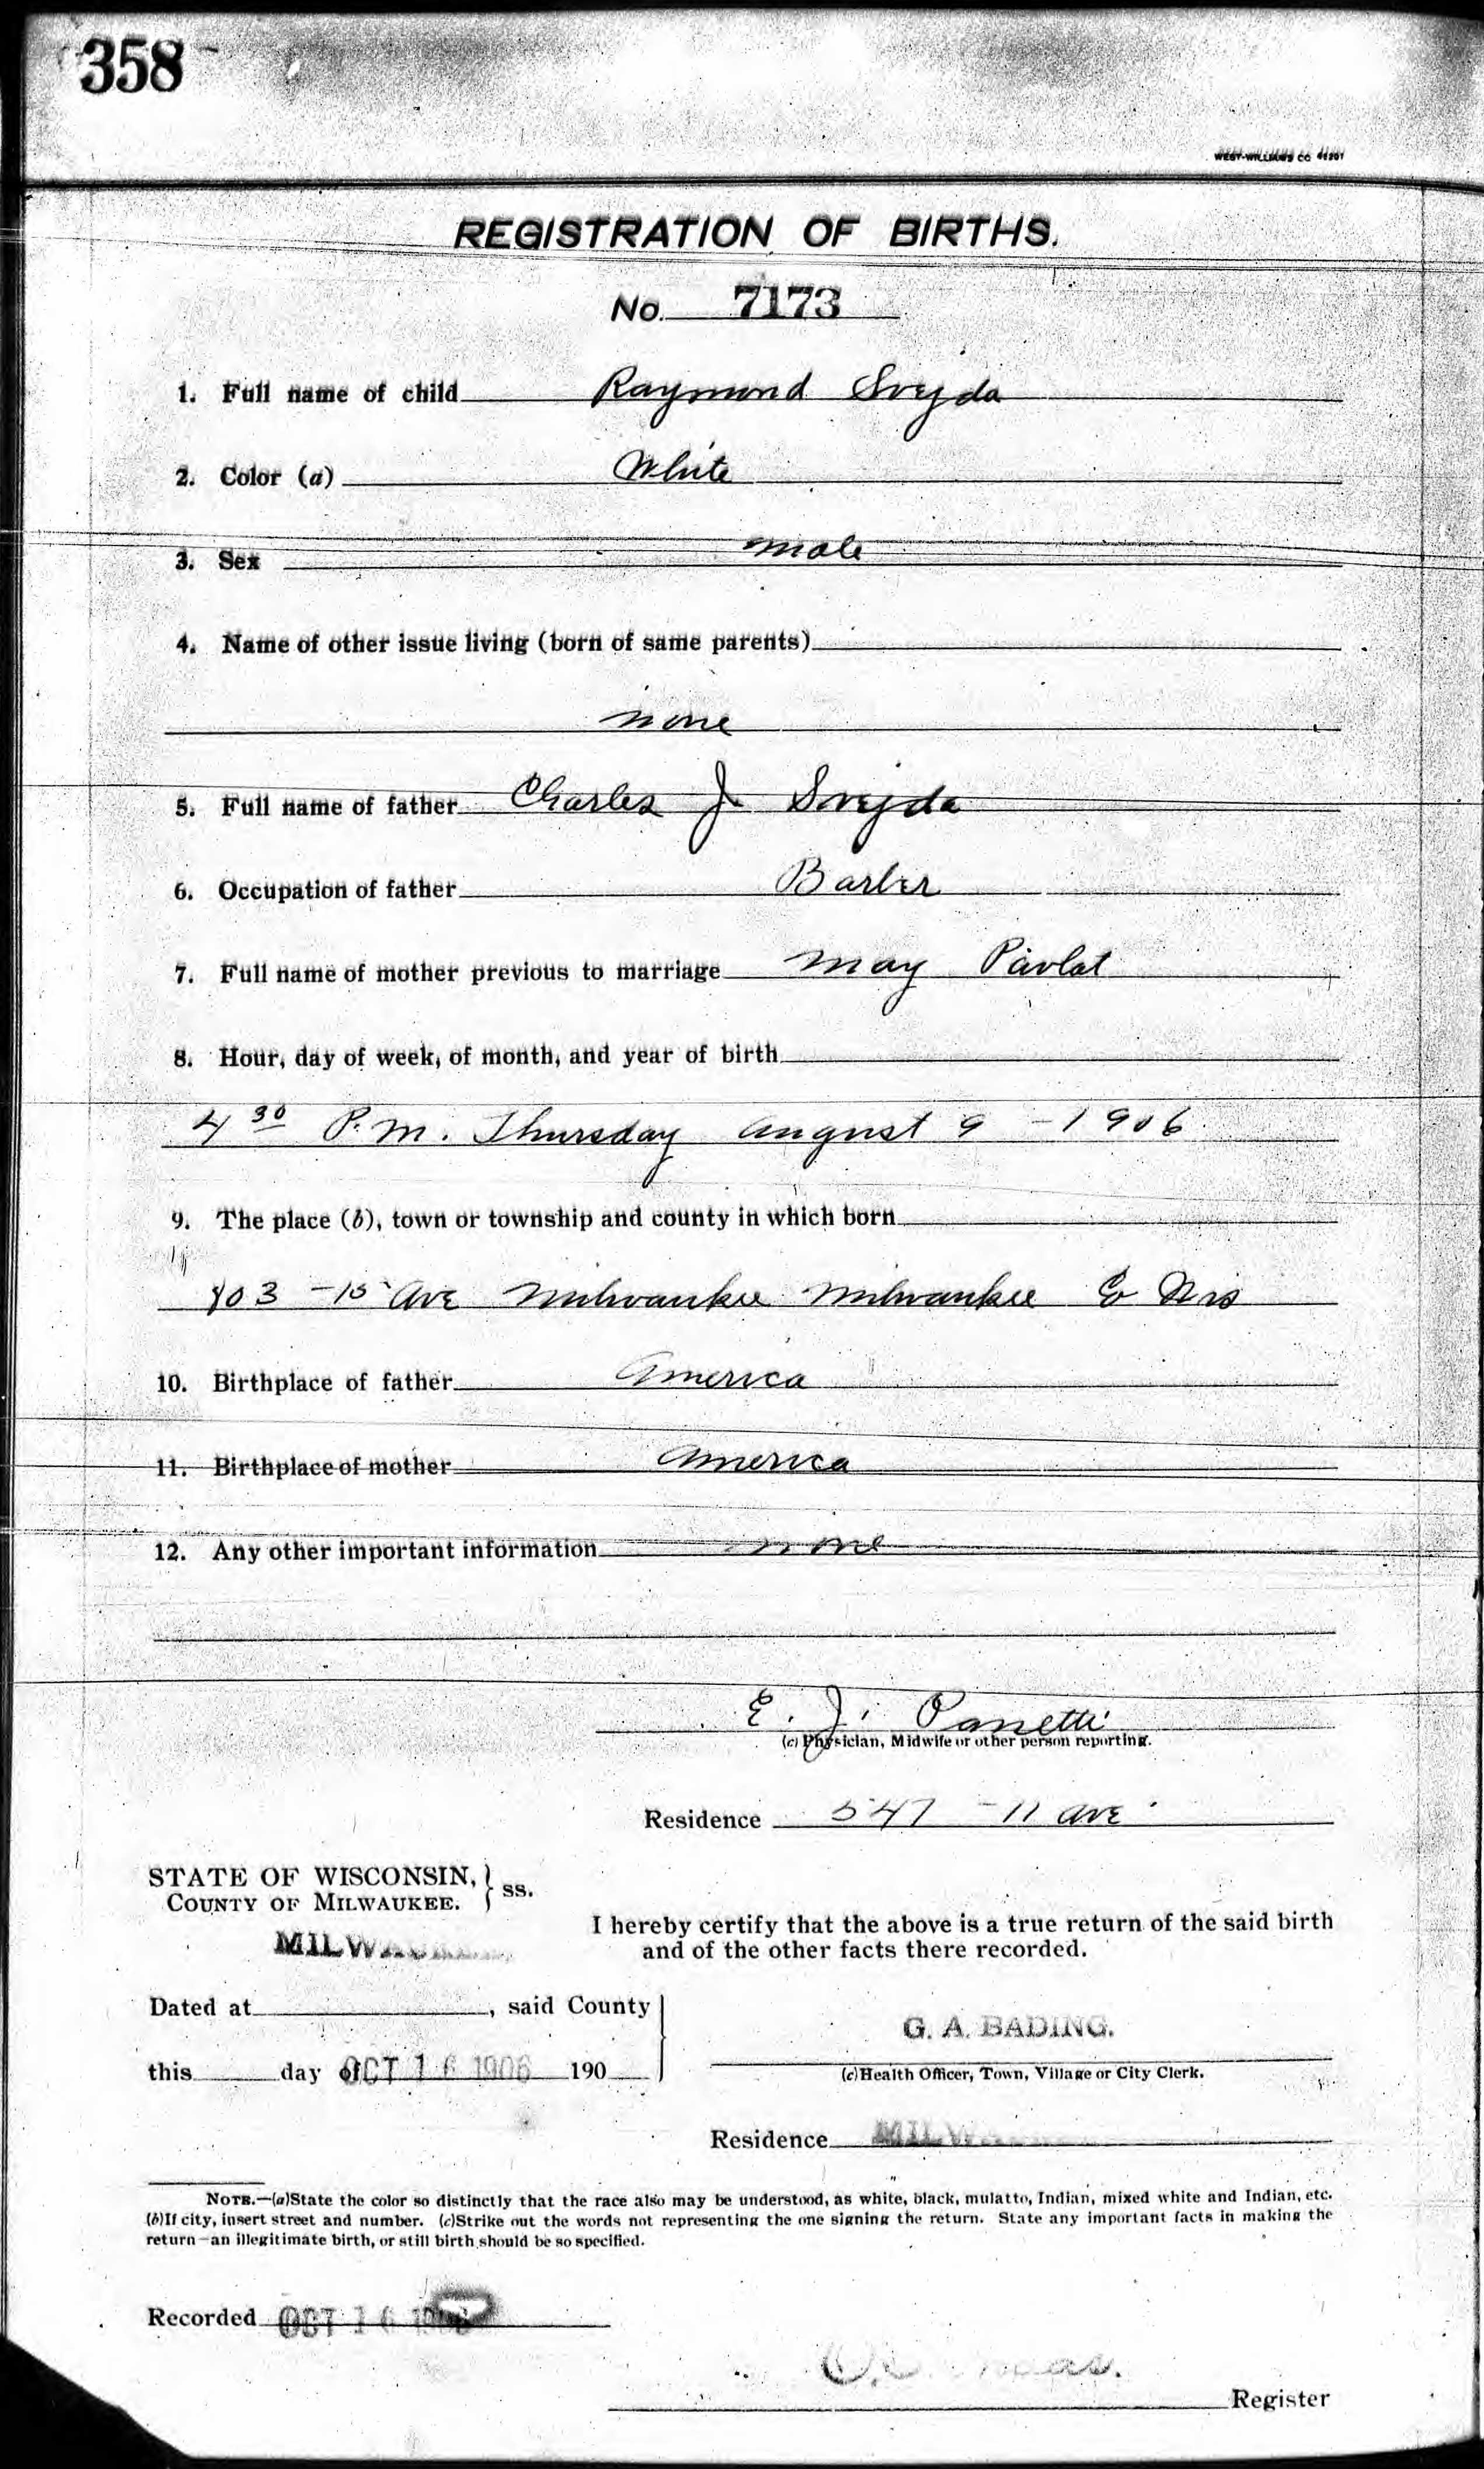 358
WEST-WILLIAMS CO
REGISTRATION OF BIRTHS.
No. 7173
1. Full name of child Raymond Svejda
2. Color (a) White
3. Sex male
4. Name of other issue living (born of same parents)
none
5. Full name of father Charles J Svejda
6. Occupation of father Barber
7. Full name of mother previous to marriage May Pavlat
8. Hour, day of week, of month, and year of birth
4 30 P.M. Thursday August 9 - 1906
9. The place (b), town or township and county in which born
- 15 Ave Milwaukee Milwaukee Co Wis
10. Birthplace of father America
11. Birthplace of mother America
12. Any other important information none
E. J. Panetti
(c) Physician, Midwife or other person reporting.
Residence 547 - 11 Ave
STATE OF WISCONSIN, } ss.
COUNTY OF MILWAUKEE.
MILWAUKEE
I hereby certify that the above is a true return of the said birth
and of the other facts there recorded.
Dated at , said County
this day of OCT 16 1906 190
G. A. BADING.
(c) Health Officer, Town, Village or City Clerk.
Residence
NOTE.—(a) State the color so distinctly that the race also may be understood, as white, black, mulatto, Indian, mixed white and Indian, etc.
(b) If city, insert street and number. (c) Strike out the words not representing the one signing the return. State any important facts in making the
return—an illegitimate birth, or still birth should be so specified.
Recorded OCT 16 1906
Register